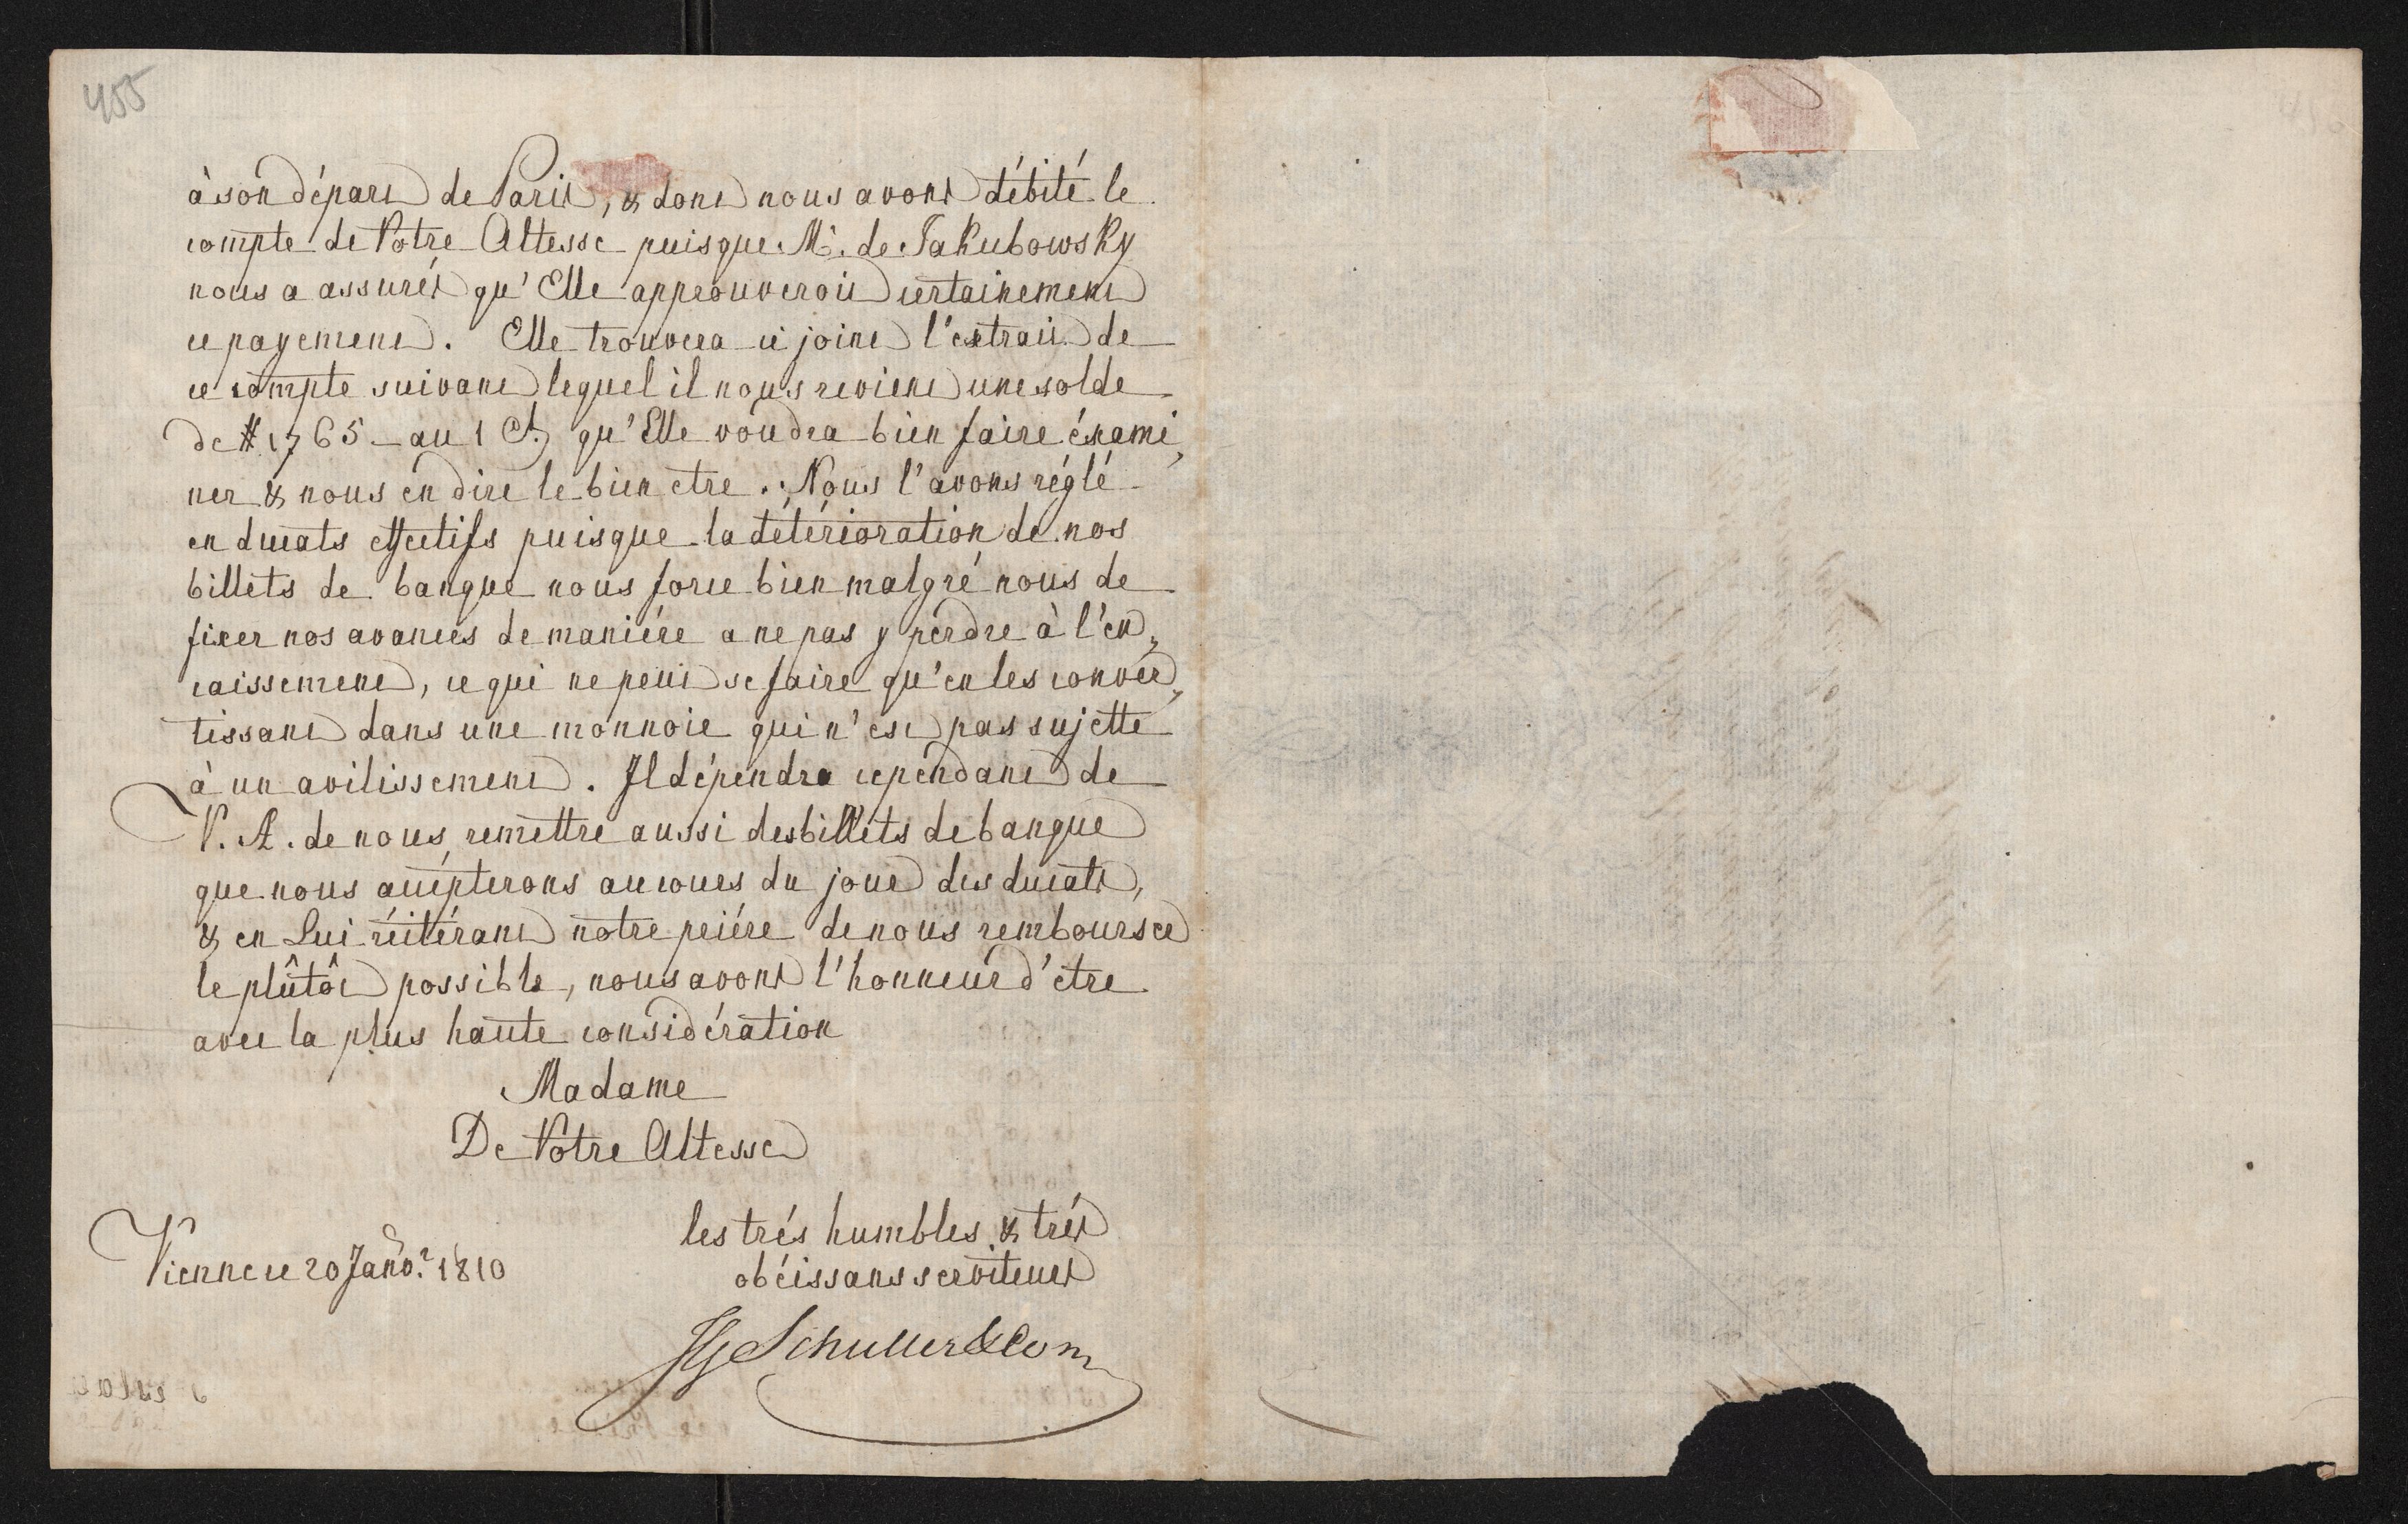 455
à son départ de Paris, & dont nous avons débité le
compte de Votre Altesse puisque Mr. de Jakubowsky
nous a assurés qu'Elle approuveroit certainement
ce payement. Elle trouvera ci joint l'extrait de
ce compte suivant lequel il nous revient une solde
de # 1765 - au 1 Ct. qu'Elle voudra bien faire éxami„
ner & nous en dire le bien etre. Nous l'avons réglé
en ducats effectifs puisque la détérioration de nos
billets de banque nous force bien malgré nous de
fixer nos avances de maniére a ne pas y perdre à l'en„
caissement, ce qui ne peut se faire qu'en les conver„
tissant dans une monnoie qui n'est pas sujette
à un avilissement. Il dépendra cependant de
V. A. de nous remettre aussi des billets de banque
que nous accépterons au cours du jour des ducats,
& en Lui réitérant notre priére de nous rembourser
le plûtôt possible, nous avons l'honneur d'etre
avec la plus haute considération
Madame
De Votre Altesse
les trés humbles & trés
obéissans serviteurs
Vienne ce 20 Janv.r 1810
JG Schuller & Com